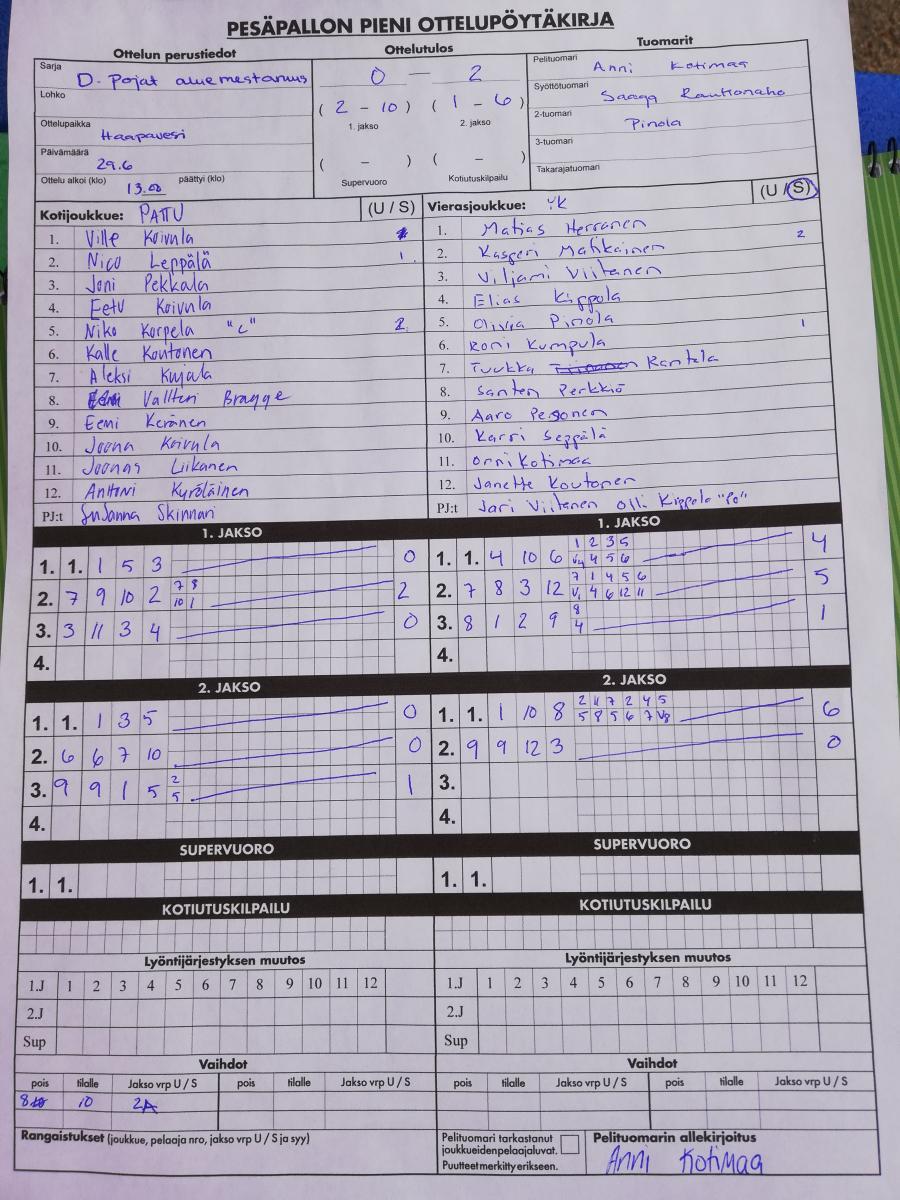 PESÄPALLON PIENI OTTELUPÖYTÄKIRJA
Ottelun perustiedot
Sarja
D-pojat aluemestaruus
Lohko
Ottelupaikka
Haapavesi
Päivämäärä
29.6
Ottelu alkoi (klo) 13.00 päättyi (klo)
Ottelutulos
0 — 2
( 2 - 10 ) ( 1 - 6 )
1. jakso 2. jakso
( - ) ( - )
Supervuoro Kotiutuskilpailu
Tuomarit
Pelituomari Anni Kotimaa
Syöttötuomari Saaga Rautionaho
2-tuomari Pinola
3-tuomari
Takarajatuomari
Kotijoukkue: PATTU (U / S)
1. Ville Koivula
2. Nico Leppälä 1
3. Joni Pekkala
4. Eetu Koivula
5. Niko Korpela "C" 2
6. Kalle Koutonen
7. Aleksi Kujala
8. Valtteri Bragge
9. Eemi Keränen
10. Joona Koivula
11. Joonas Liikanen
12. Anttoni Kyröläinen
PJ:t Susanna Skinnari
Vierasjoukkue: YK (U / S)
1. Matias Herranen
2. Kasperi Matikainen 2
3. Viljami Viitanen
4. Elias Kippola
5. Olivia Pinola 1
6. Roni Kumpula
7. Tuukka Rantala
8. Santeri Perkkiö
9. Aaro Pesonen
10. Karri Seppälä
11. Onni Kotimaa
12. Janette Koutonen
PJ:t Jari Viitanen Olli Kippola "Po"
1. JAKSO
1. 1. 1 5 3 0
2. 7 9 10 2 7 8 2
10 1
3. 3 11 3 4 0
4.
1. JAKSO
1. 1. 4 10 6 1 2 3 5 4
V4 4 5 6
2. 7 8 3 12 7 1 4 5 6 5
V1 4 6 12 11
3. 8 1 2 9 8 1
4
4.
2. JAKSO
1. 1. 1 3 5 0
2. 6 6 7 10 0
3. 9 9 1 5 2 1
5
4.
2. JAKSO
1. 1. 1 10 8 2 11 7 2 4 5 6
5 8 5 6 7 V8
2. 9 9 12 3 0
3.
4.
SUPERVUORO
1. 1.
SUPERVUORO
1. 1.
KOTIUTUSKILPAILU
KOTIUTUSKILPAILU
Lyöntijärjestyksen muutos
1.J 1 2 3 4 5 6 7 8 9 10 11 12
2.J
Sup
Lyöntijärjestyksen muutos
1.J 1 2 3 4 5 6 7 8 9 10 11 12
2.J
Sup
Vaihdot
pois tilalle Jakso vrp U / S pois tilalle Jakso vrp U / S
8 10 2A
Vaihdot
pois tilalle Jakso vrp U / S pois tilalle Jakso vrp U / S
Rangaistukset (joukkue, pelaaja nro, jakso vrp U / S ja syy)
Pelituomari tarkastanut
joukkueiden pelaajaluvat.
Puutteet merkitty erikseen.
Pelituomarin allekirjoitus
Anni Kotimaa